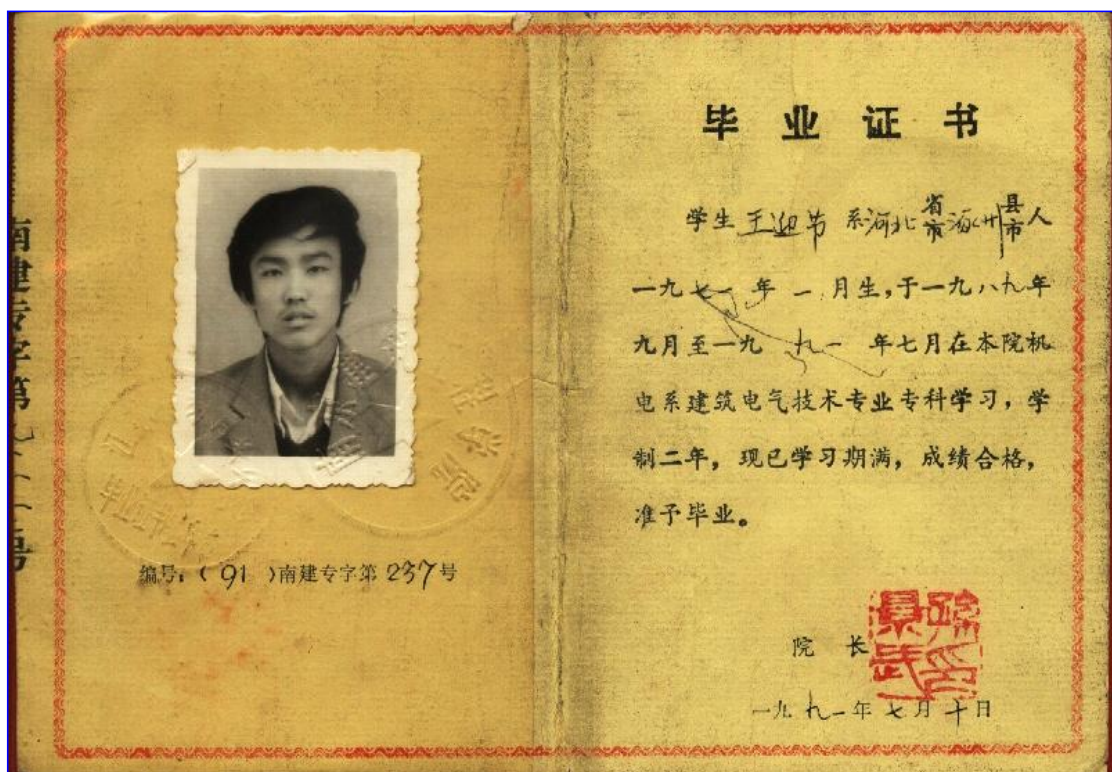 南建专字第
号
编号:( 91 )南建专字第 237号
毕业证书
学生王迎节系河北省市涿州县市人
一九七一年一月生,于一九八九年
九月至一九九一年七月在本院机
电系建筑电气技术专业专科学习,学
制二年,现已学习期满,成绩合格,
准予毕业。
院长
一九九一年七月十日